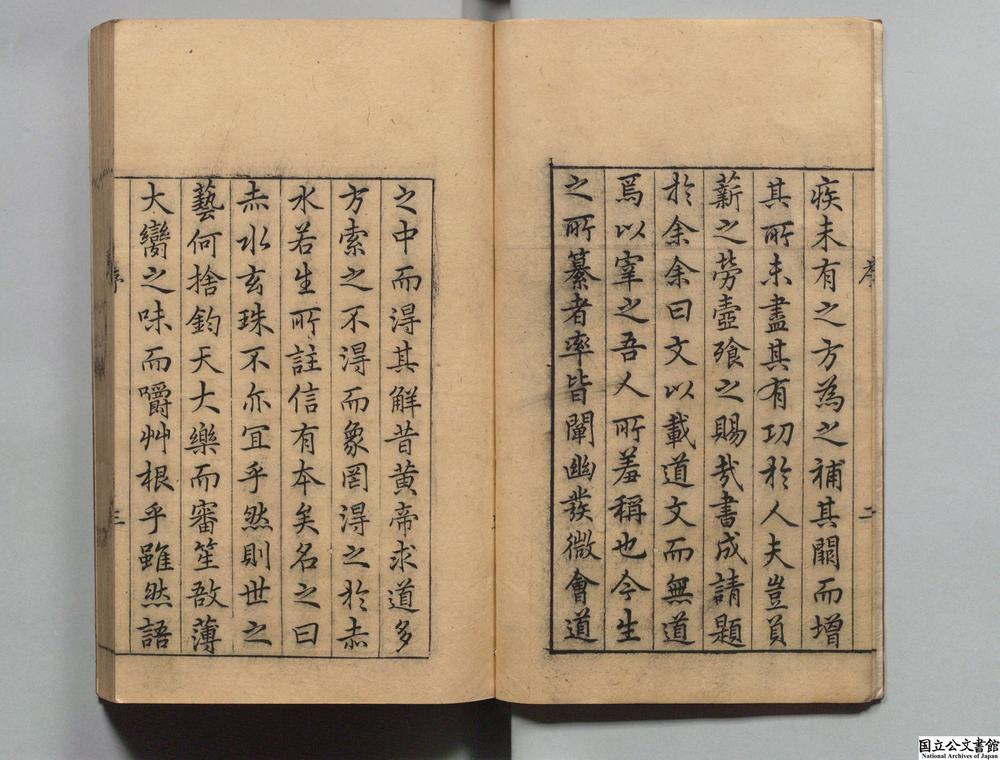 序
二
疾未有之方為之補其闕而增
其所未盡其有功於人夫豈負
薪之勞壺飱之賜哉書成請題
於余余曰文以載道文而無道
焉以宰之吾人所羞稱也今生
之所纂者率皆闡幽發微會道
之中而得其解昔黃帝求道多
方索之不得而象罔得之於赤
水若生所註信有本矣名之曰
赤水玄珠不亦宜乎然則世之
藝何捨鈞天大樂而審笙敔薄
大臠之味而嚼艸根乎雖然語
序
三
国立公文書館
National Archives of Japan